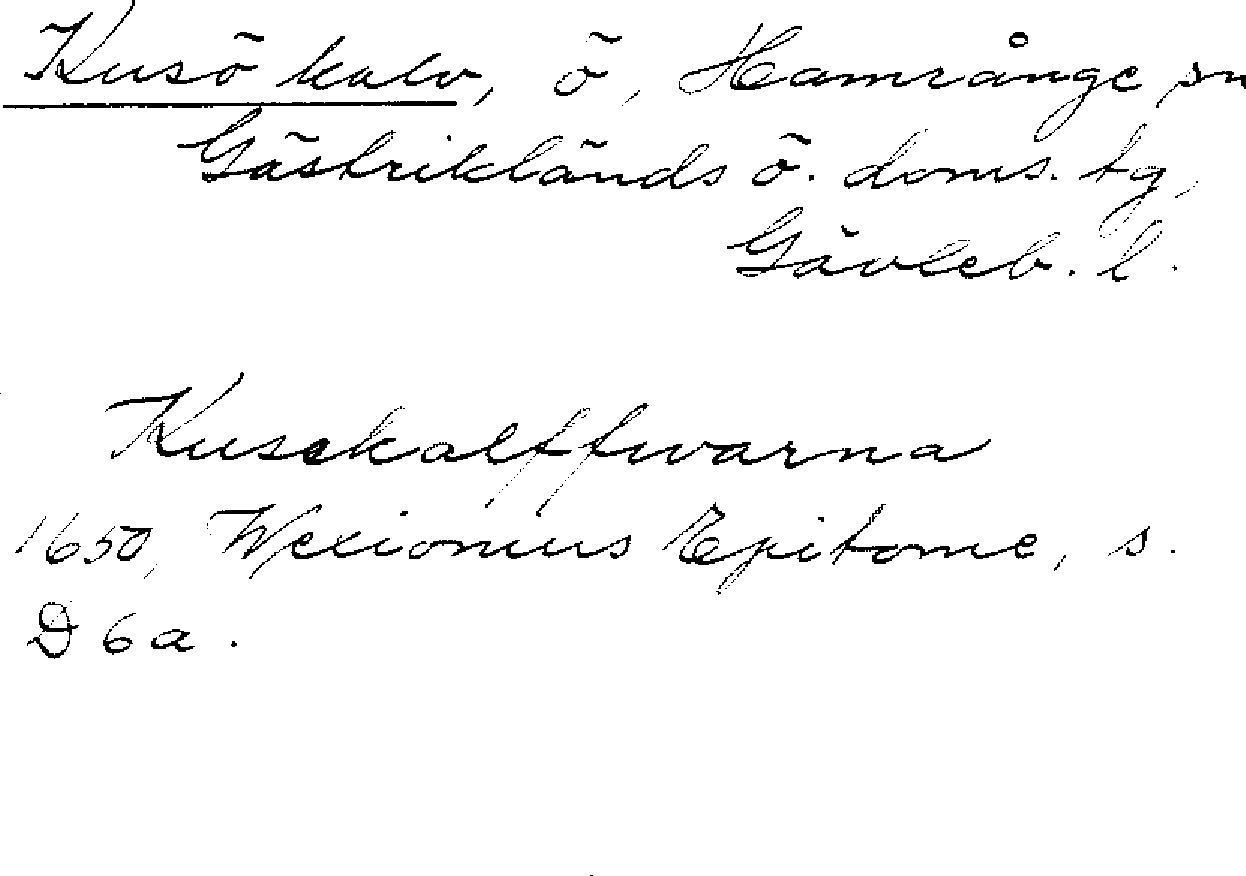 Kusö kalv, ö, Hamrånge sn
Gästriklands ö. doms. tg,
Gävleb. l.
Kusekalffwarna
1650, Wexionius Epitome, s.
D 6 a.